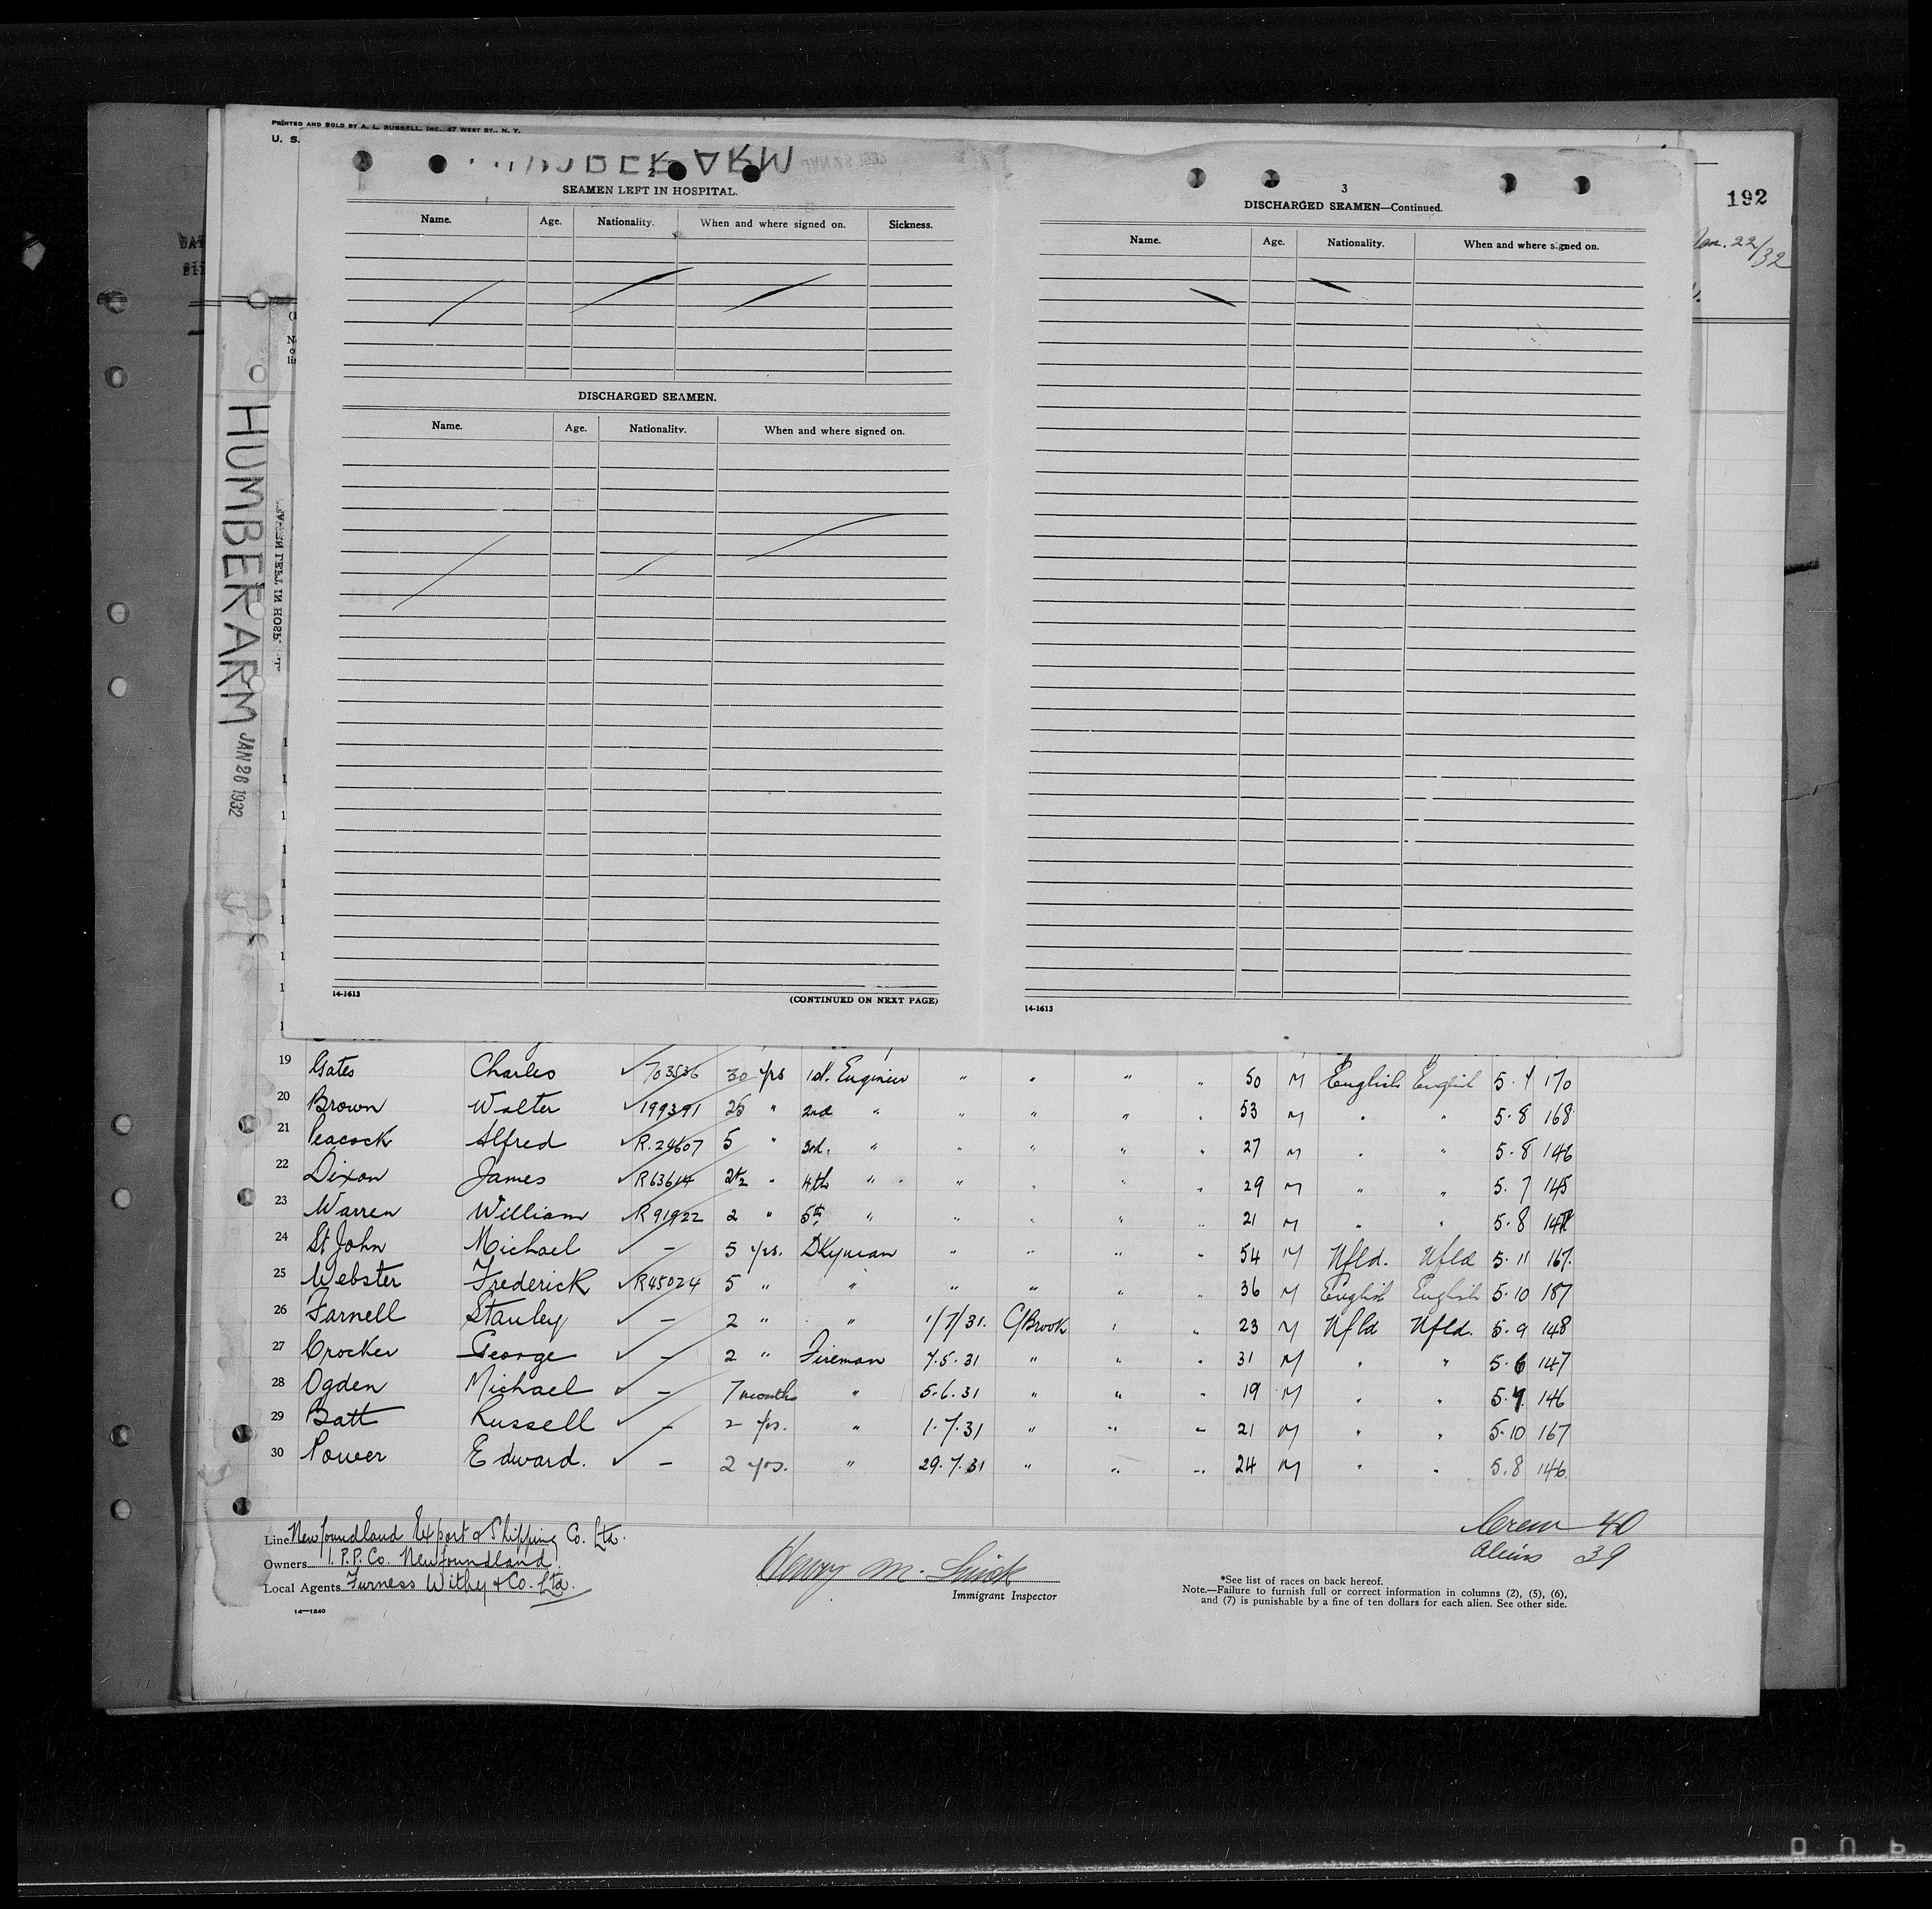 PRINTED AND SOLD BY A. L. RUSSELL, INC., 47 WEST ST., N. Y.
U. S.
192
Jan. 22/32
HUMBER ARM
JAN 26 1932
2
SEAMEN LEFT IN HOSPITAL.
Name. Age. Nationality. When and where signed on. Sickness.
DISCHARGED SEAMEN.
Name. Age. Nationality. When and where signed on.
14-1613
(CONTINUED ON NEXT PAGE)
3
DISCHARGED SEAMEN—Continued.
Name. Age. Nationality. When and where signed on.
14-1613
19 Gates Charles ✓ 703536 30 yrs 1st. Engineer " " " " 50 M English English 5.7 170
20 Brown Walter ✓ 199391 25 " 2nd " " " " " 53 M " " 5.8 168
21 Peacock Alfred ✓ R.24607 5 " 3rd. " " " " " 27 M " " 5.8 146
22 Dixon James ✓ R63614 2½ " 4th " " " " " 29 M " " 5.7 145
23 Warren William ✓ R91922 2 " 5th " " " " " 21 M " " 5.8
24 St John Michael ✓ — 5 yrs. DKyman " " " " 54 M Nfld. Nfld 5.11 167.
25 Webster Frederick ✓ R45024 5 " " " " " " 36 M English English 5.10 187
26 Farnell Stanley ✓ — 2 " " 1/7/31. C/Brook " " 23 M Nfld Nfld. 5.9 148
27 Crocker George ✓ — 2 " Fireman 7.5.31 " " " 31 M " " 5.6 147
28 Ogden Michael ✓ — 7 months " 5.6.31 " " " 19 M " " 5.7. 146
29 Batt Russell ✓ — 2 yrs. " 1.7.31 " " " 21 M " " 5.10 167
30 Power Edward. ✓ — 2 yrs. " 29.7.31 " " " 24 M " " 5.8 146.
Line Newfoundland Export & Shipping Co. Ltd.
Owners I. P. P. Co. Newfoundland.
Local Agents Furness Withy & Co. Ltd.
14—1240
Henry M.
Immigrant Inspector
Crew 40
Aliens 39
*See list of races on back hereof.
Note.—Failure to furnish full or correct information in columns (2), (5), (6),
and (7) is punishable by a fine of ten dollars for each alien. See other side.